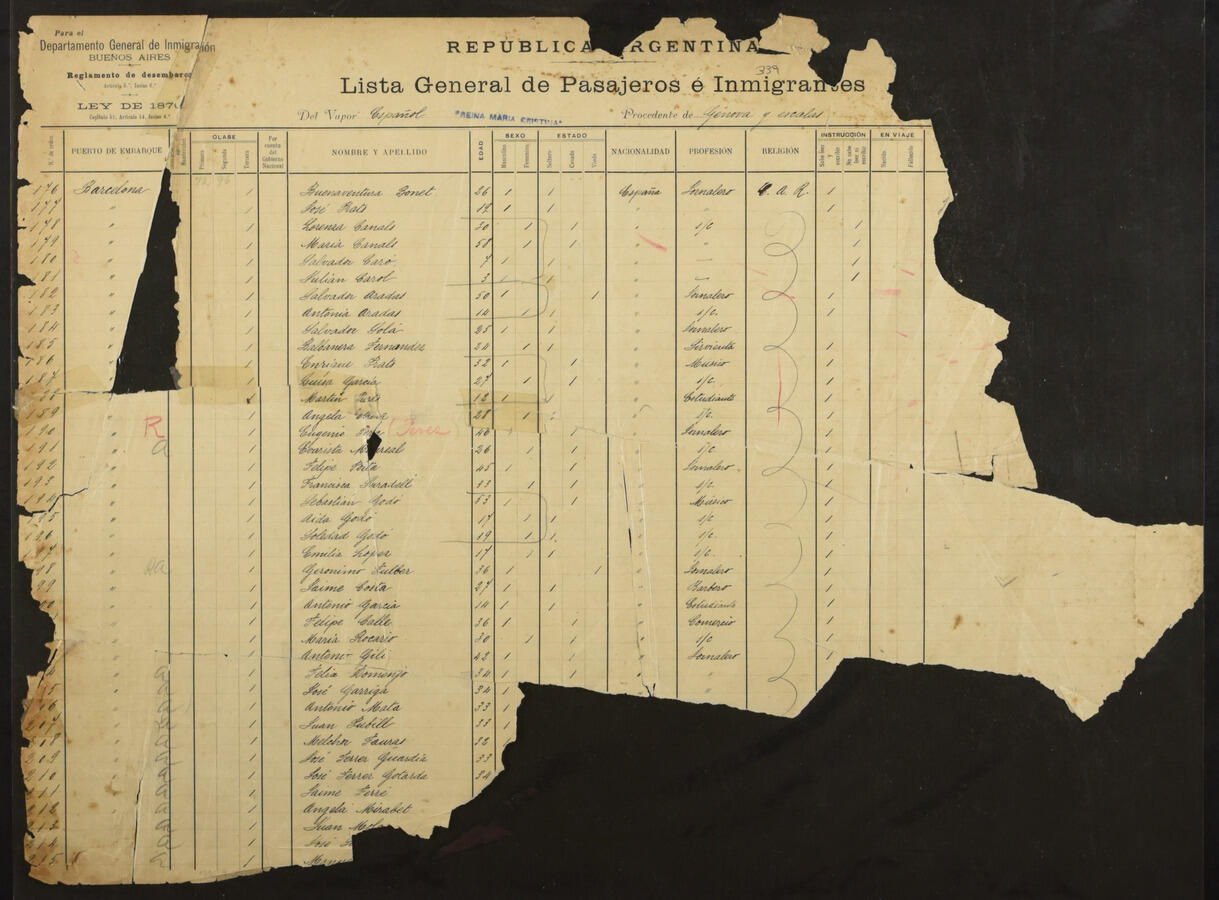 Para el
Departamento General de Inmigración
BUENOS AIRES
Reglamento de desembarco
LEY DE 187
REPÚBLICA ARGENTINA
339
Lista General de Pasajeros é Inmigrantes
Del Vapor Español "REINA MARIA CRISTINA" Procedente de Génova y escalas
N.º de orden PUERTO DE EMBARQUE CLASE Primera Segunda Tercera Por cuenta del Gobierno Nacional NOMBRE Y APELLIDO EDAD SEXO Masculino Femenino ESTADO Soltero Casado Viudo NACIONALIDAD PROFESIÓN RELIGIÓN INSTRUCCIÓN Sabe leer y escribir No sabe leer ni escribir EN VIAJE Nacido Fallecido
176 Barcelona / Buenaventura Bonet 26 / / España Jornalero C. A. R. /
177 " / José Prats 19 / / " " /
178 " / Lorenza Canals 30 / / " s/c /
179 " / Maria Canals 58 / / " " /
180 " / Salvador Caró 7 / / " — /
181 " / Julián Carol 3 / / " — /
182 " / Salvador Aradas 50 / / " Jornalero /
183 " / Antonia Aradas 14 / / " s/c. /
184 " / Salvador Solá 25 / / " Jornalero /
185 " / Fernandez 24 / / " Sirvienta /
186 " / Enrique Prats 32 / / " Musico /
187 " / Luisa Garcia 27 / / " s/c. /
188 " / Martin Prats 12 / / " Estudiante /
189 " / Angela 28 / " s/c. /
190 R " / Eugenio (Perez) 46 / / " Jornalero /
191 " / Evarista 26 / / " s/c /
192 " / Felipe 45 / / " Jornalero /
193 " / Francisca Saradell 33 / / " s/c. /
194 " / Sebastián Godó 53 / / " Musico /
195 " / Aida Godó 17 / / " s/c /
196 " / Soledad Godó 19 / / " s/c. /
" / Emilia Lopez 17 / / " s/c. /
98 " / Geronimo Fulber 36 / / " Jornalero /
99 " / Jaime Costa 27 / / " Barbero /
" / Antonio Garcia 14 / / " Estudiante /
" / Felipe Calle 36 / / " Comercio /
" / Maria Rocario 30 / / " s/c /
" / Antonio Gili 42 / / " Jornalero /
" / Felia Domenjo 34 / / " " /
" / José Garriga 34 /
" / Antonio Mata 33 /
" / Juan Pubill 33 /
" / Melchor Tauras 32
209 " / José Ferrer Guardia 33
210 " / José Ferrer Golarda 34
211 " / Jaime Ferré
212 " / Angela Mirabet
" / Juan
214 " / José
215 " /